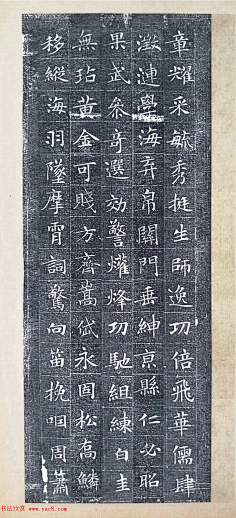 章耀采毓秀挺生師逸功倍飛華儒肆
澂漣學海弃帛關門垂紳亰縣仁必昭
果武叅奇選効警爟烽功馳組練白圭
無玷黃金可賤方齊嵩岱永固松高鱗
移縱海羽墜摩霄詞驚向笛挽咽周蕭
书法欣赏 www.yac8.com